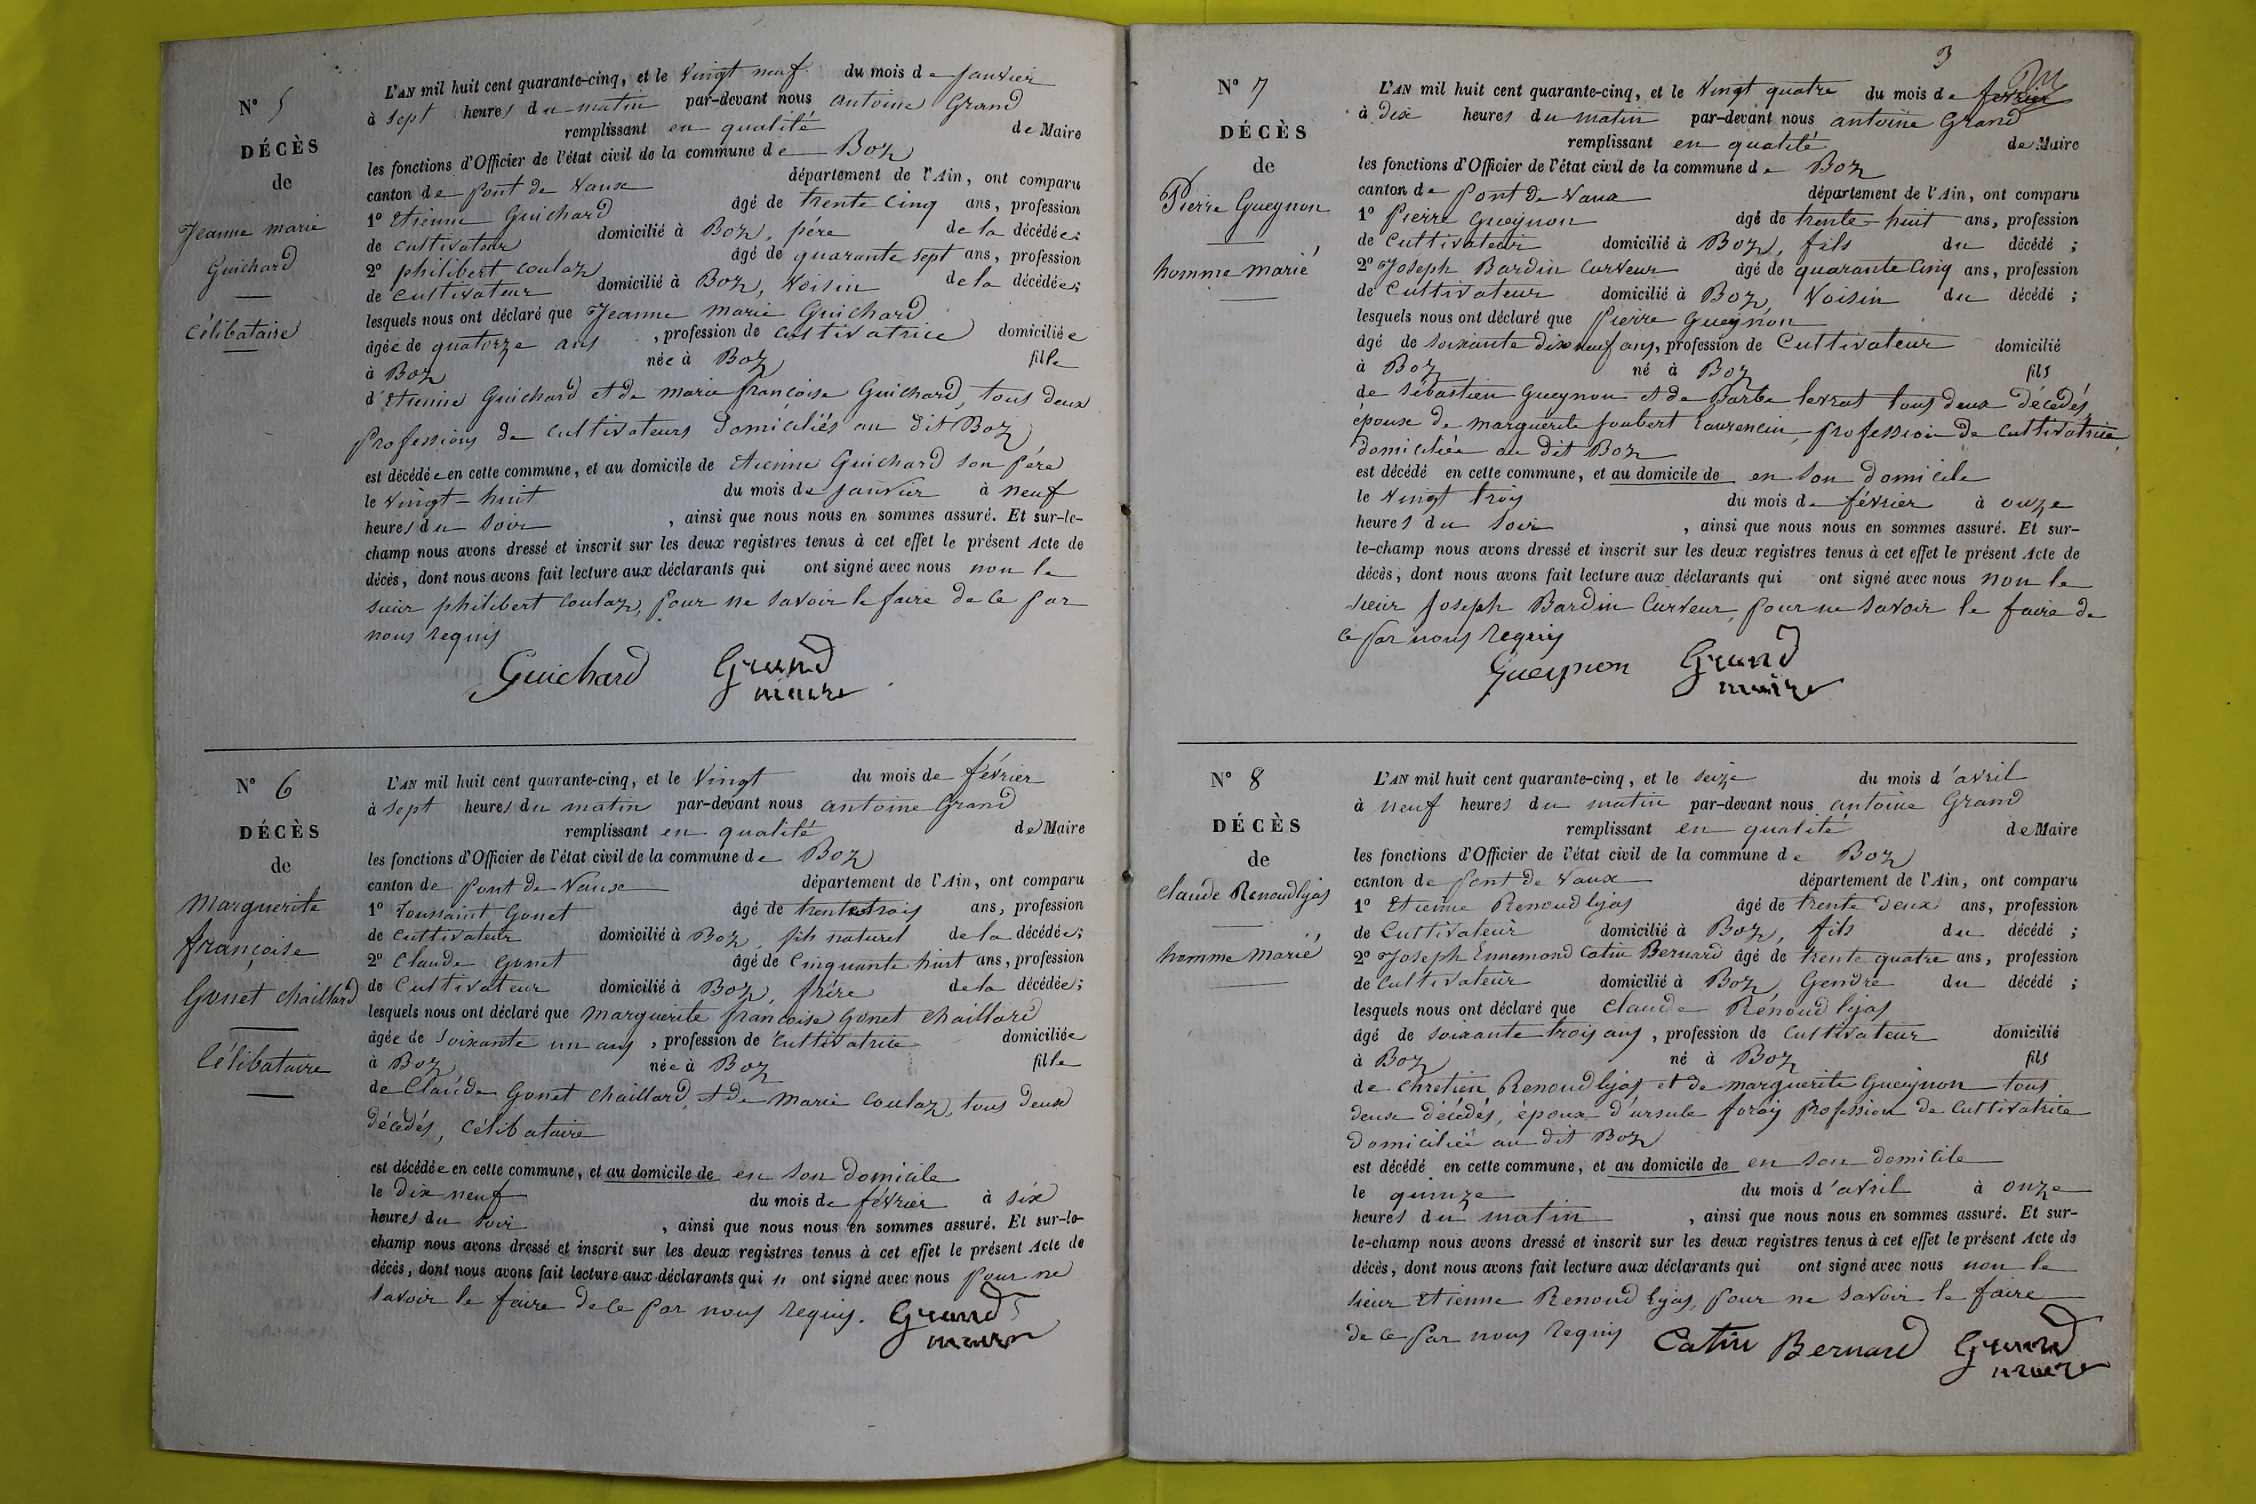 N° 5
DÉCÈS
de
Jeanne marie
Guichard
Célibataire
L'AN mil huit cent quarante-cinq, et le Vingt neuf du mois de Janvier
à sept heures du matin par-devant nous antoine Grand
remplissant en qualité de Maire
les fonctions d'Officier de l'état civil de la commune de Boz
canton de Pont de Vaux département de l'Ain, ont comparu
1° Etienne Guichard âgé de trente cinq ans, profession
de cultivateur domicilié à Boz, père de la décédée;
2° philibert coulaz âgé de quarante sept ans, profession
de cultivateur domicilié à Boz, Voisin de la décédée;
lesquels nous ont déclaré que Jeanne Marie Guichard
âgée de quatorze ans, profession de cultivatrice domiciliée
à Boz née à Boz fille
d'Etienne Guichard et de marie françoise Guichard, tous deux
Professions de cultivateurs domiciliés au dit Boz
est décédée en cette commune, et au domicile de Etienne Guichard son père
le vingt-huit du mois de Janvier à neuf
heures du soir, ainsi que nous nous en sommes assuré. Et sur-le-
champ nous avons dressé et inscrit sur les deux registres tenus à cet effet le présent Acte de
décès, dont nous avons fait lecture aux déclarants qui ont signé avec nous non le
sieur philibert coulaz, pour ne savoir le faire de ce par
nous requis
Guichard Grand
maire
N° 6
DÉCÈS
de
Marguerite
françoise
Gonet chaillard
Célibataire
L'AN mil huit cent quarante-cinq, et le Vingt du mois de février
à sept heures du matin par-devant nous antoine Grand
remplissant en qualité de Maire
les fonctions d'Officier de l'état civil de la commune de Boz
canton de Pont de Vaux département de l'Ain, ont comparu
1° Toussaint Gonet âgé de trente trois ans, profession
de cultivateur domicilié à Boz, fils naturel de la décédée;
2° Claude Gonet âgé de Cinquante huit ans, profession
de Cultivateur domicilié à Boz, frère de la décédée;
lesquels nous ont déclaré que Marguerite françoise Gonet chaillard
âgée de soixante un ans, profession de Cultivatrice domiciliée
à Boz née à Boz fille
de Claude Gonet chaillard, et de Marie coulaz, tous deux
décédés, célibataire
est décédée en cette commune, et au domicile de en son domicile
le dix neuf du mois de février à six
heures du soir, ainsi que nous nous en sommes assuré. Et sur-le-
champ nous avons dressé et inscrit sur les deux registres tenus à cet effet le présent Acte de
décès, dont nous avons fait lecture aux déclarants qui n ont signé avec nous pour ne
savoir le faire de ce par nous requis. Grand
maire
3
N° 7
DÉCÈS
de
Pierre Gueynon
homme marié
L'AN mil huit cent quarante-cinq, et le Vingt quatre du mois de février
à dix heures du matin par-devant nous antoine Grand
remplissant en qualité de Maire
les fonctions d'Officier de l'état civil de la commune de Boz
canton de Pont de Vaux département de l'Ain, ont comparu
1° Pierre Gueynon âgé de trente-huit ans, profession
de Cultivateur domicilié à Boz, fils du décédé;
2° Joseph Bardin Curveur âgé de quarante Cinq ans, profession
de Cultivateur domicilié à Boz, Voisin du décédé;
lesquels nous ont déclaré que Pierre Gueynon
âgé de soixante dix neuf ans, profession de Cultivateur domicilié
à Boz né à Boz fils
de Sébastien Gueynon et de Barbe levrat tous deux décédés,
époux de marguerite Joubert Laurencin, profession de cultivatrice,
domiciliée au dit Boz
est décédé en cette commune, et au domicile de en son domicile
le Vingt trois du mois de février à onze
heures du soir, ainsi que nous nous en sommes assuré. Et sur-
le-champ nous avons dressé et inscrit sur les deux registres tenus à cet effet le présent Acte de
décès, dont nous avons fait lecture aux déclarants qui ont signé avec nous non le
sieur Joseph Bardin Curveur, pour ne savoir le faire de
ce par nous requis
Gueynon Grand
maire
N° 8
DÉCÈS
de
Claude Renoud lyas
homme marié
L'AN mil huit cent quarante-cinq, et le seize du mois d'avril
à neuf heures du matin par-devant nous antoine Grand
remplissant en qualité de Maire
les fonctions d'Officier de l'état civil de la commune de Boz
canton de Pont de Vaux département de l'Ain, ont comparu
1° Etienne Renoud lyas âgé de trente deux ans, profession
de Cultivateur domicilié à Boz, fils du décédé;
2° Joseph Ennemond Catin Bernard âgé de trente quatre ans, profession
de Cultivateur domicilié à Boz, Gendre du décédé;
lesquels nous ont déclaré que Claude Renoud lyas
âgé de soixante trois ans, profession de Cultivateur domicilié
à Boz né à Boz fils
de chretien Renoud lyas et de marguerite Gueynon tous
deux décédés, époux d'ursule foray profession de Cultivatrice
domiciliée au dit Boz
est décédé en cette commune, et au domicile de en son domicile
le quinze du mois d'avril à onze
heures du matin, ainsi que nous nous en sommes assuré. Et sur-
le-champ nous avons dressé et inscrit sur les deux registres tenus à cet effet le présent Acte de
décès, dont nous avons fait lecture aux déclarants qui ont signé avec nous non le
sieur Etienne Renoud lyas, pour ne savoir le faire
de ce par nous requis Catin Bernard Grand
maire